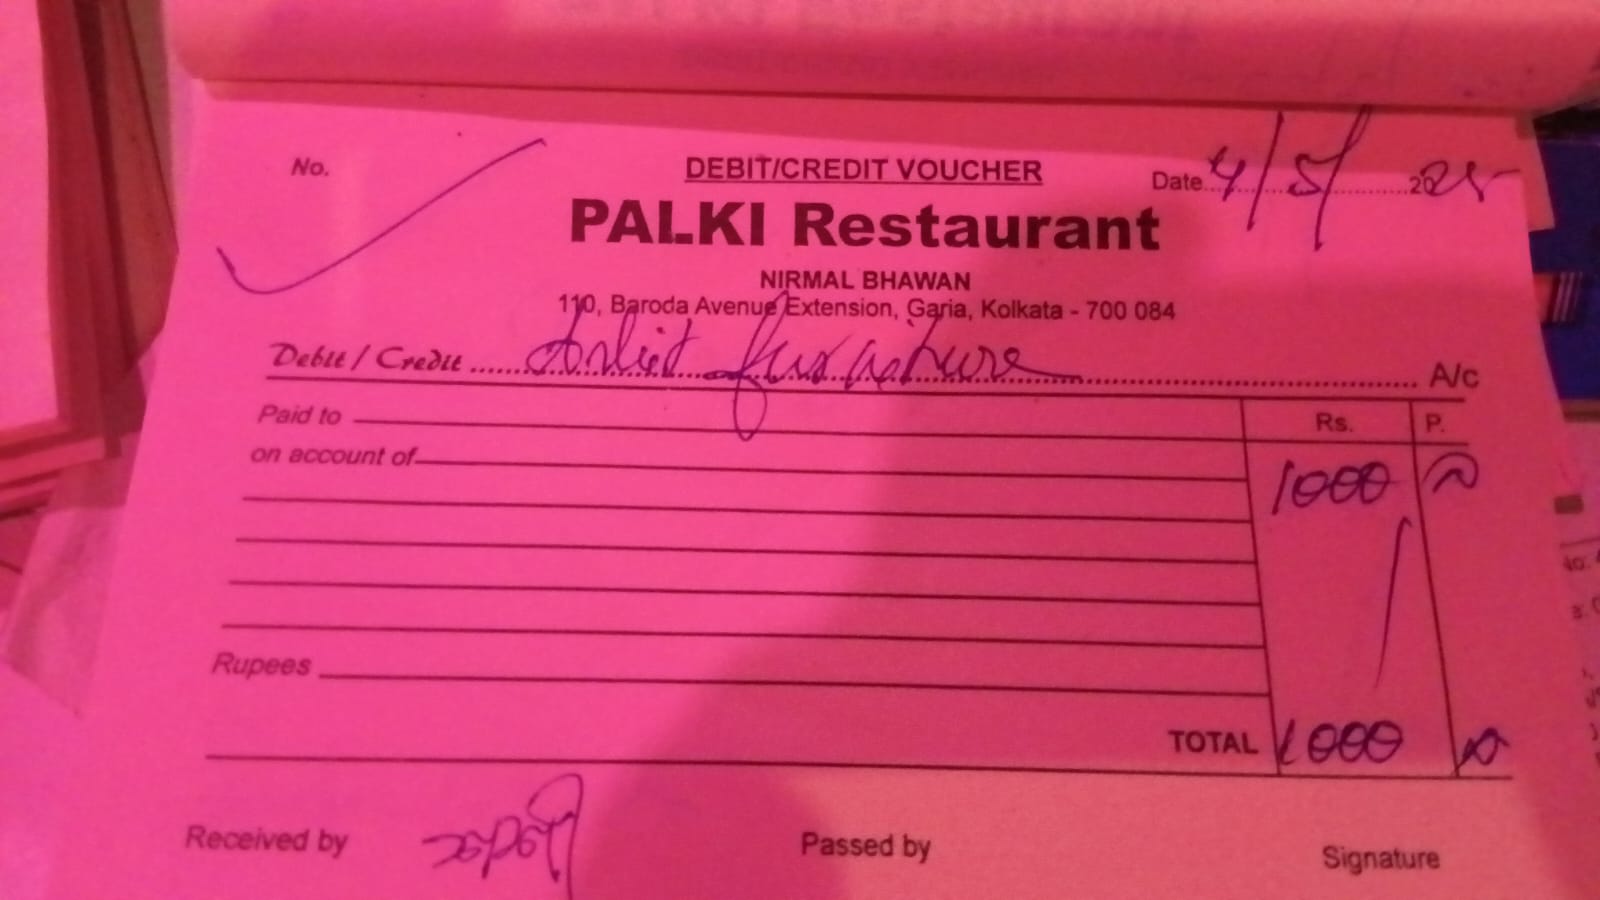 No.
DEBIT/CREDIT VOUCHER
Date 4/5/2025
PALKI Restaurant
NIRMAL BHAWAN
110, Baroda Avenue Extension, Garia, Kolkata - 700 084
Debit / Credit A/c
Paid to Rs. P.
on account of
1000
Rupees
TOTAL 1000
Received by Passed by Signature